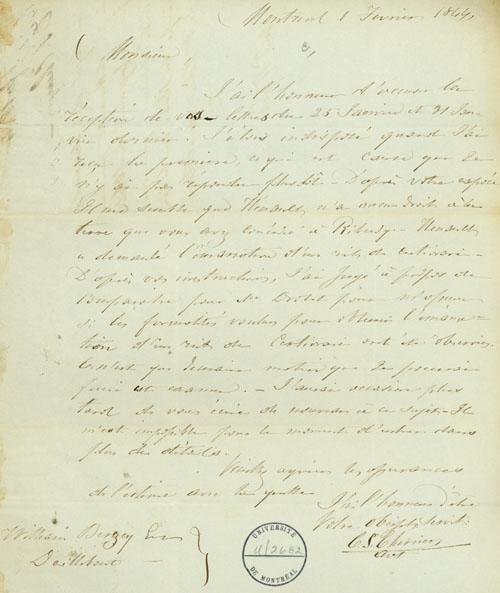 Montreal 1 Fevrier 1844,
Monsieur,
J'ai l'honneur d'accuser la
réception de vos lettres du 25 Janvier et 31 Jan-
vier dernier. J'étais indisposé quand J'ai
reçu la premiere, ce qui est cause que Je
n'y ai pas répondu plustôt - D'après votre exposé
Il me semble que n'a aucun droit à la
terre que vous avez concédé à
a demandé l'émanation d'un writ de certiorari -
D'après vos instructions, J'ai jugé à propos de
Comparaitre pour Mr Drolet pour m'assurer
si les formalités voulues pour obtenir l'émana-
tion d'un writ de Certiorari ont été observées.
Ce n'est que demain matin que Je pourrai
faire cet examen. - J'aurai occasion plus
tard de vous écrire de nouveau à ce sujet. Il
m'est impossible pour le moment d'entrer dans
plus de détails.
Veuillez agréer les assurances
de l'estime avec laquelle
J'ai l'honneur d'être
Votre Obeisst Servit.
C. S. Cherrier
Avt
William Berczy Esr
Daillebout
UNIVERSITÉ
U/2682
DE MONTRÉAL